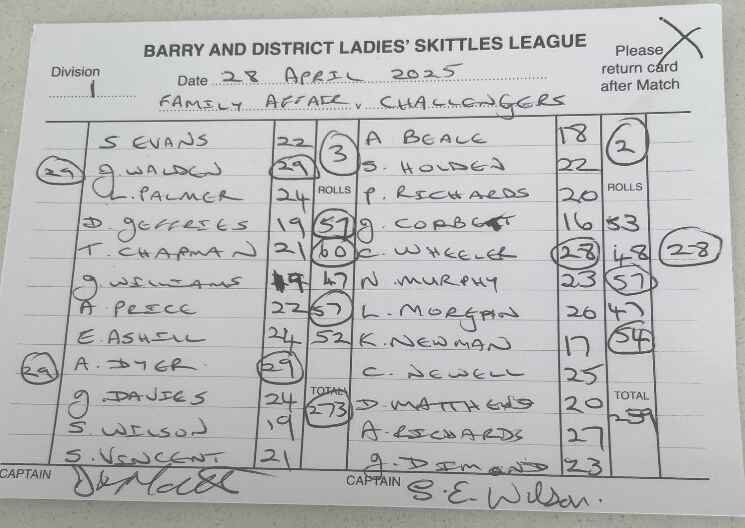 BARRY AND DISTRICT LADIES' SKITTLES LEAGUE
Please return card after Match
Division 1
Date 28 APRIL 2025
FAMILY AFFAIR v CHALLENGERS
S EVANS 22 3 A BEALE 18 2
29 G. WALDEN 29 S. HOLDEN 22
L. PALMER 24 ROLLS P. RICHARDS 20 ROLLS
D. GEFFRIES 19 57 G. CORBETT 16 53
T. CHAPMAN 21 60 C. WHEELER 28 48 28
G. WILLIAMS 47 N. MURPHY 23 57
A PRICE 22 57 L. MORGAN 20 47
E. ASHILL 24 52 K. NEWMAN 17 54
29 A. DYER 29 C. NEWELL 25
G. DAVIES 24 TOTAL 273 D. MATTHEWS 20 TOTAL 259
S. WILSON 19 A. RICHARDS 27
S. VINCENT 21 G. DIMOND 23
CAPTAIN CAPTAIN S. E. Wilson.